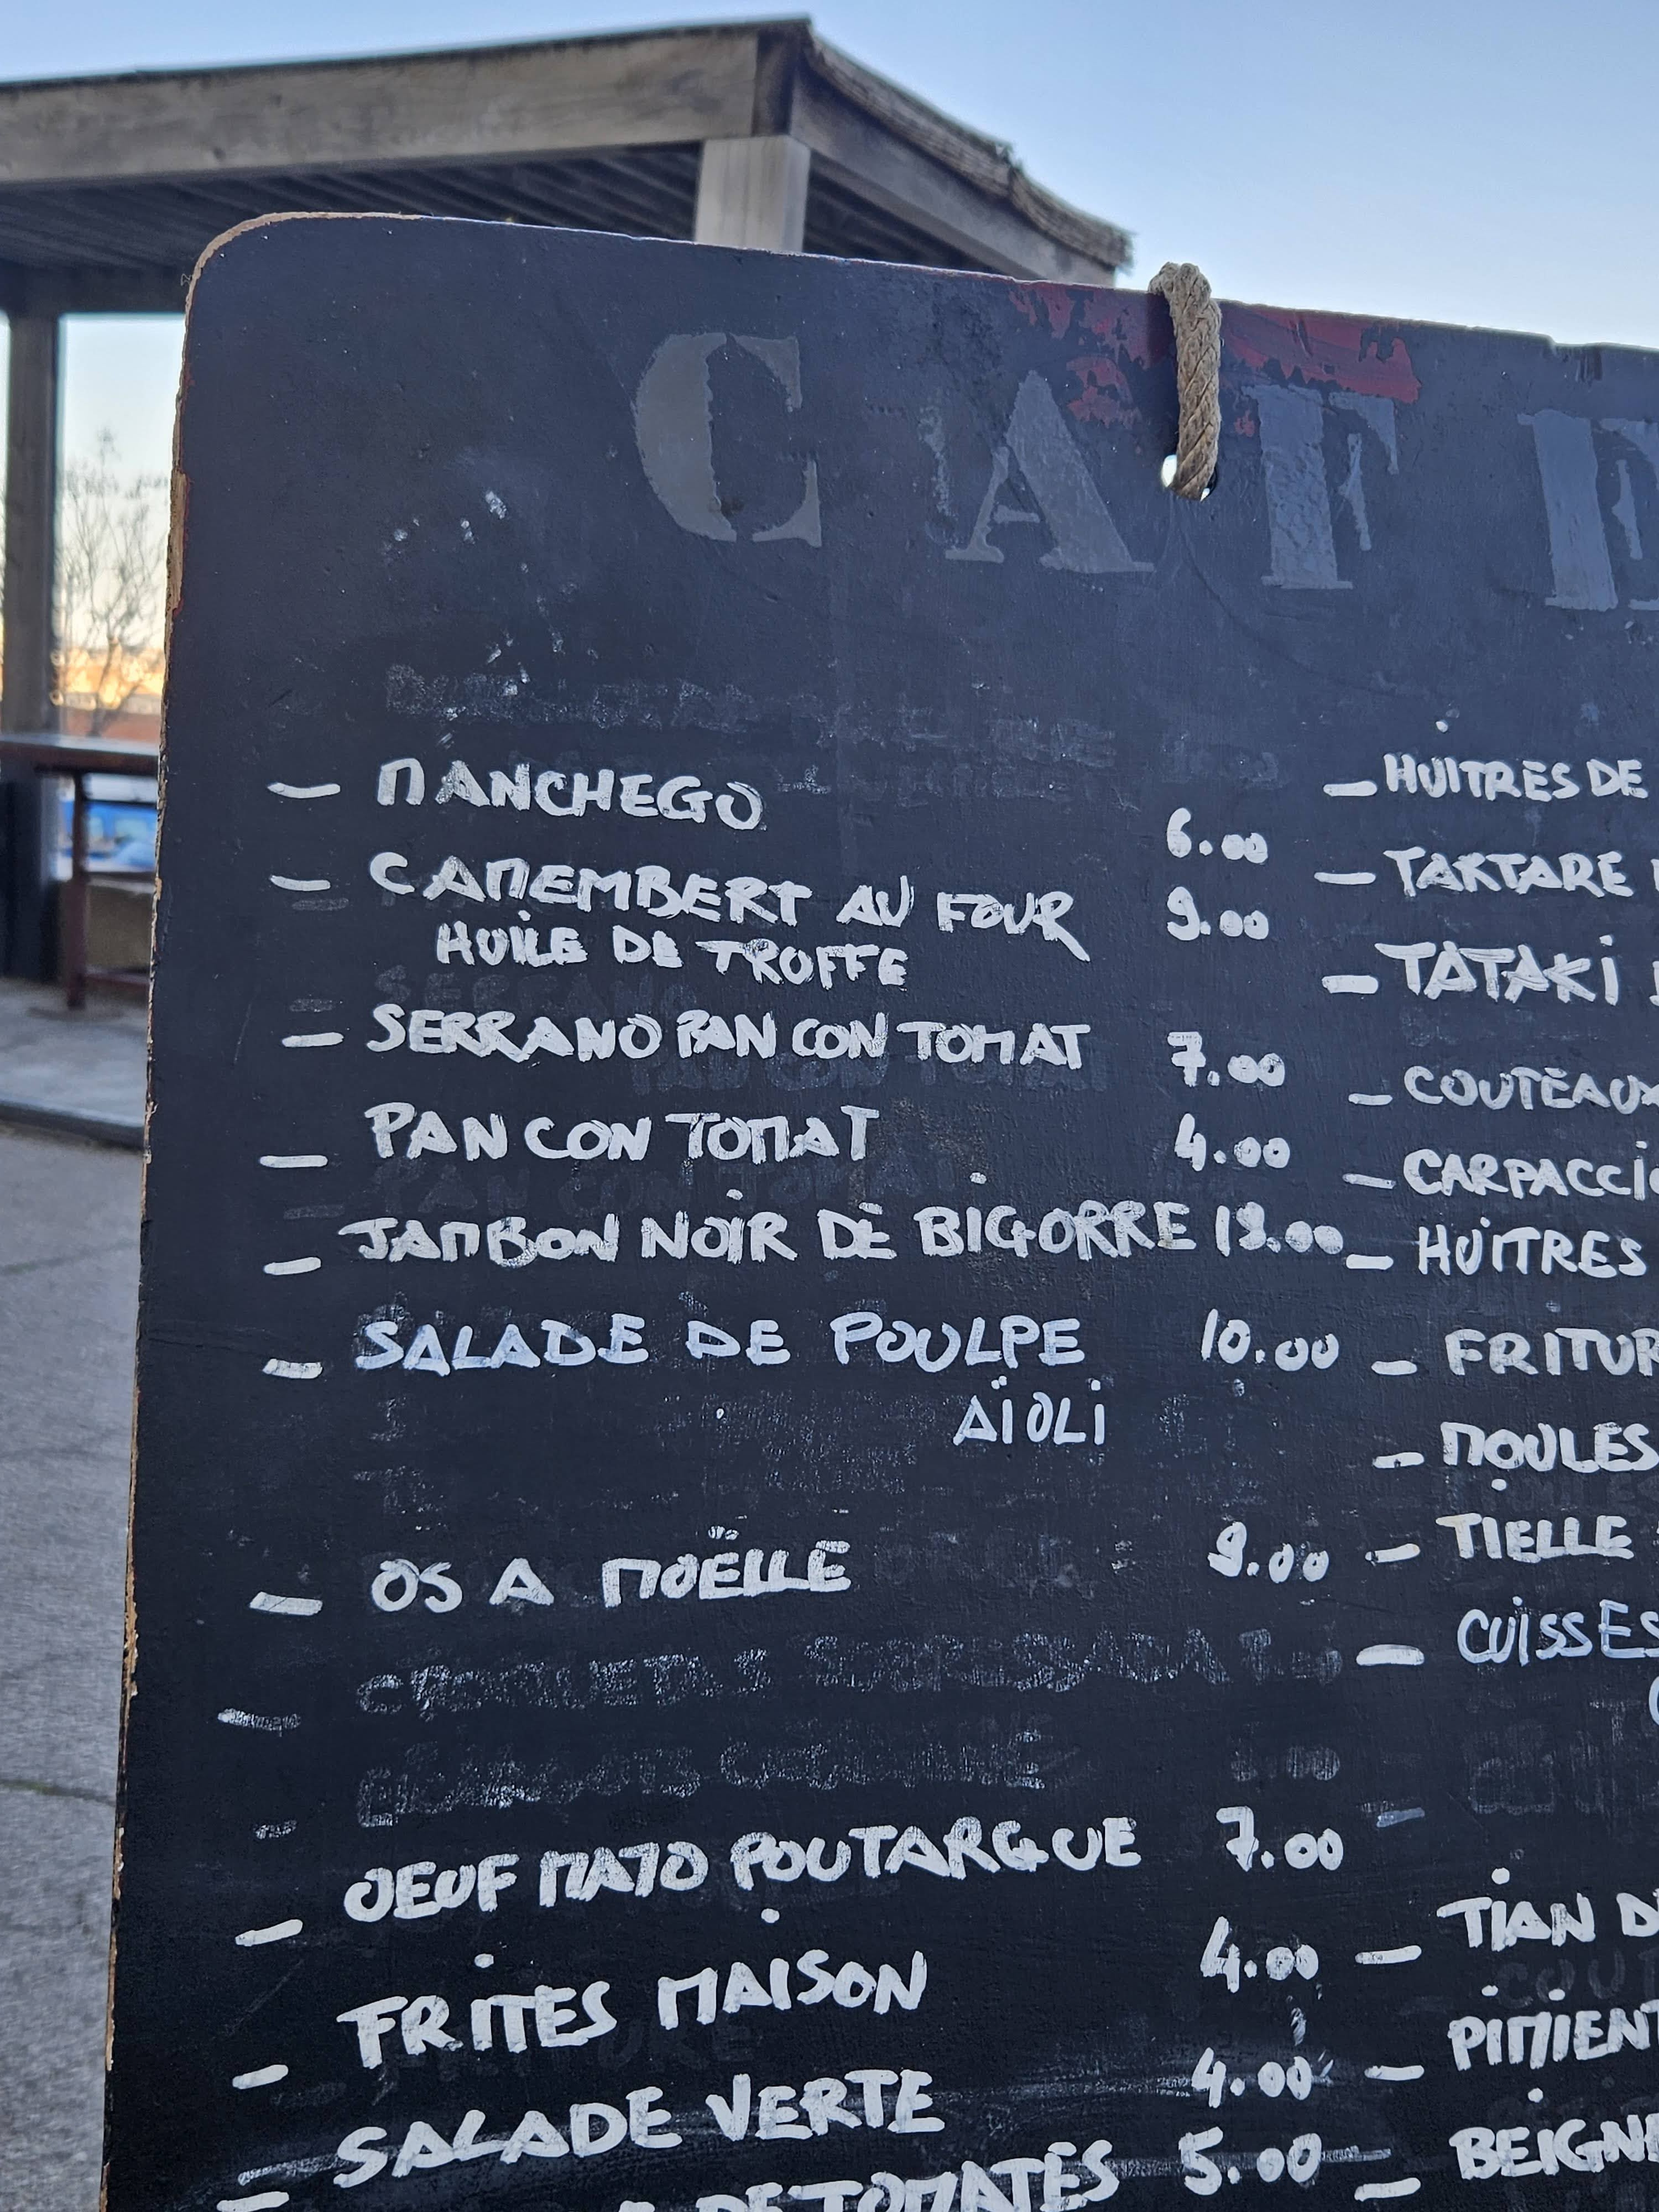 CAFE
— MANCHEGO 6.00
— CAMEMBERT AU FOUR 9.00
HUILE DE TROFFE
— SERRANO PAN CON TOMAT 7.00
— PAN CON TOMAT 4.00
— JAMBON NOIR DE BIGORRE
— SALADE DE POULPE 10.00
AÏOLI
— OS A MOËLLE 9.00
— OEUF MAYO POUTARGUE 7.00
— FRITES MAISON 4.00
— SALADE VERTE 4.00
DE TOMATES 5.00
— HUITRES DE
— TARTARE
— TATAKI
— COUTEAUX
— CARPACCIO
— HUITRES
— FRITUR
— MOULES
— TIELLE
— CUISSES
— TIAN D
— PIMIENT
— BEIGN